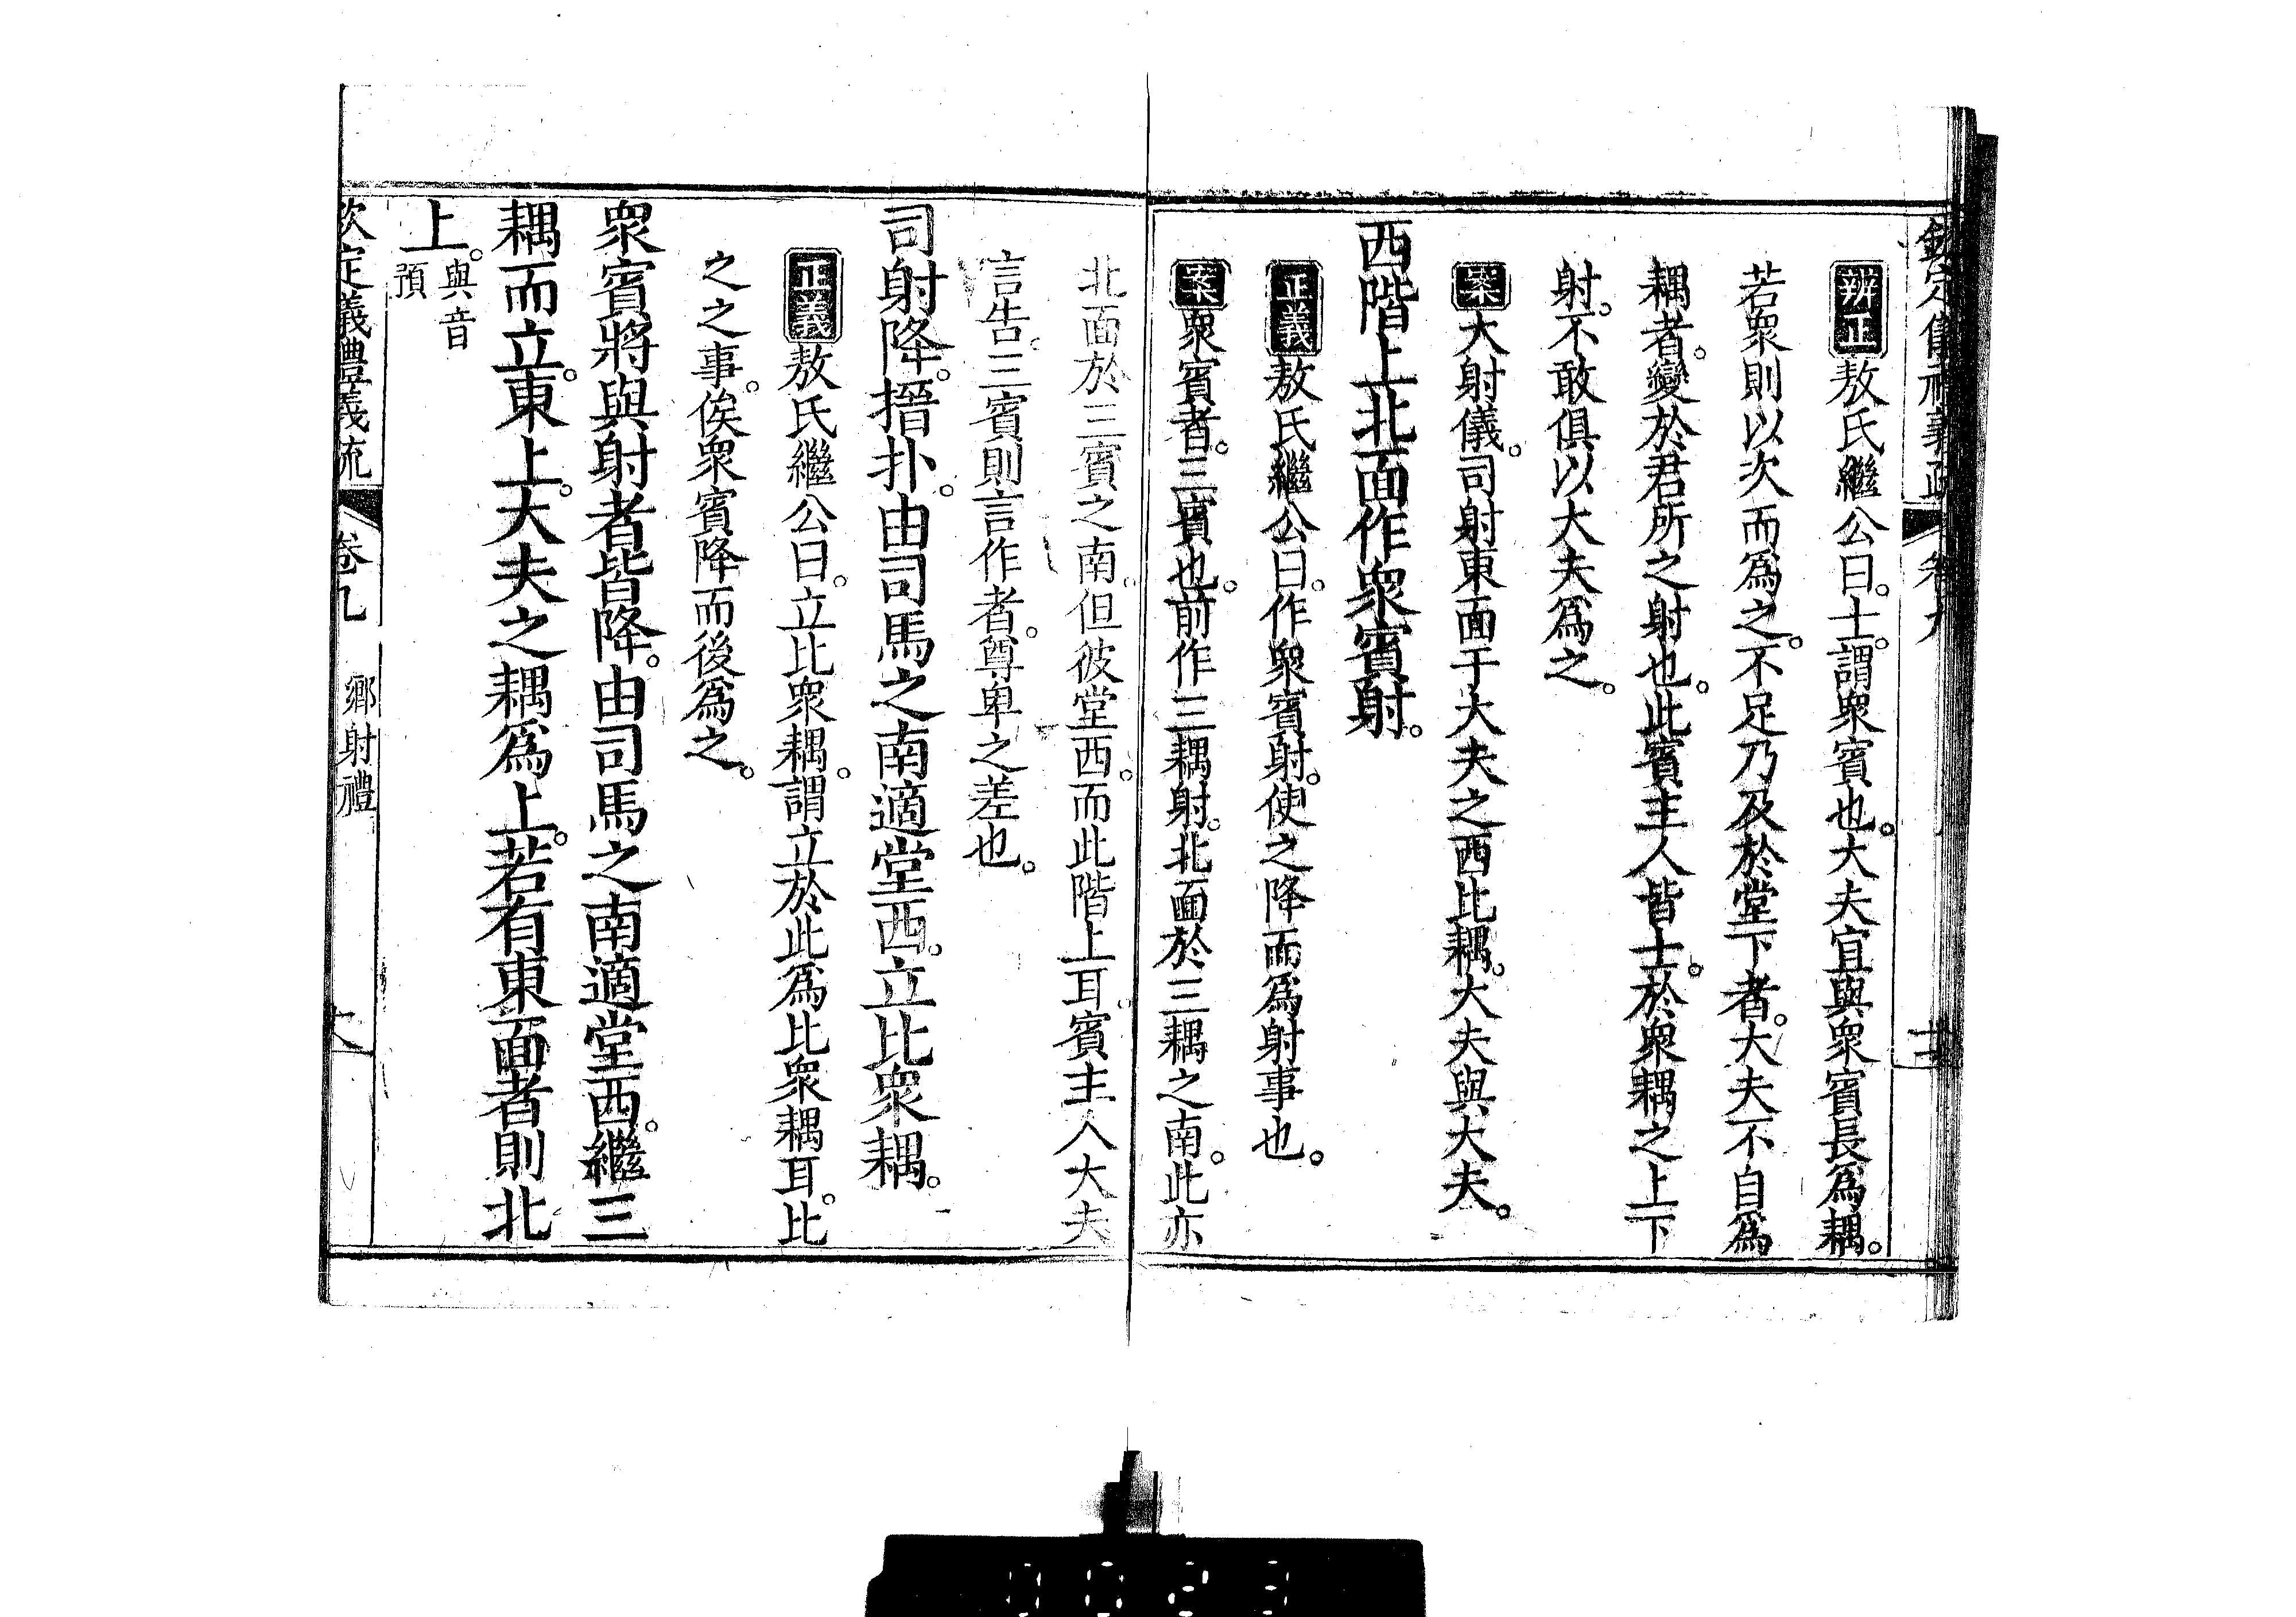 辨正敖氏繼公曰。士。謂衆賓也。大夫宜與衆賓長爲耦。
若衆則以次而爲之。不足乃及於堂下者。大夫不自爲
耦者。變於君所之射也。此賓主人皆士。於衆耦之上下
射。不敢俱以大夫爲之。
案大射儀。司射東面于大夫之西比耦。大夫與大夫。
西階上北面作衆賓射。
正義敖氏繼公曰。作衆賓射。使之降而爲射事也。
案衆賓者。三賓也。前作三耦射。北面於三耦之南。此亦
北面於三賓之南。但彼堂西。而此階上耳。賓主人大夫
言告。三賓則言作者。尊卑之差也。
司射降。搢扑。由司馬之南適堂西。立比衆耦。
正義敖氏繼公曰。立比衆耦。謂立於此爲比衆耦耳。比
之之事。俟衆賓降而後爲之。
衆賓將與射者皆降。由司馬之南適堂西。繼三
耦而立。東上。大夫之耦爲上。若有東面者則北
上。與音
預
欽定義禮義疏 卷九 鄉射禮